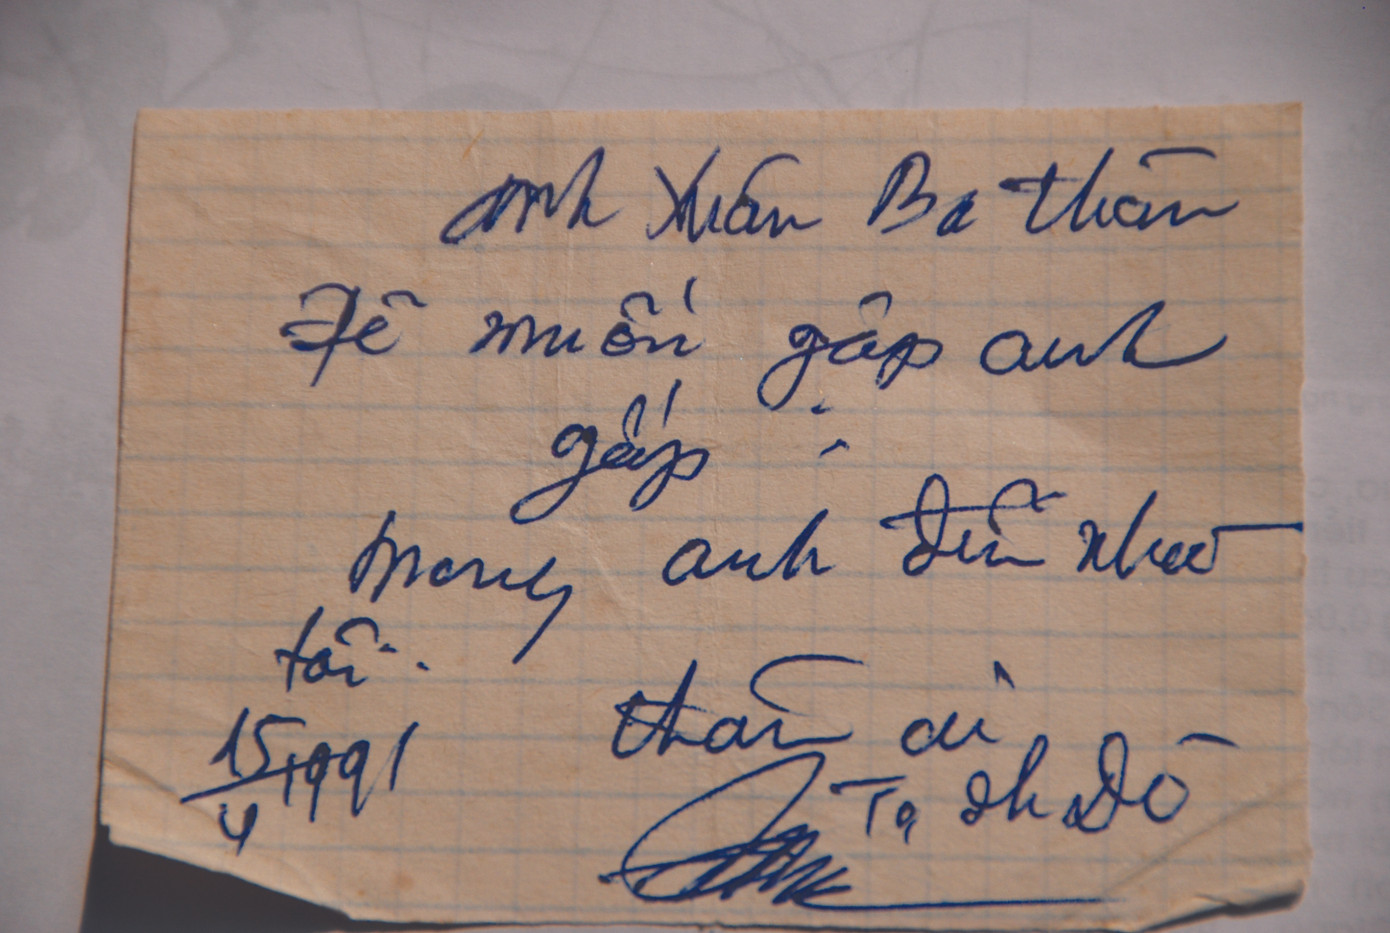 Anh Xuân Ba thân
Đề muốn gặp anh
gấp :
mong anh đến nhà
tôi..
thân ái
15/4 1991
Tạ Đh Đề